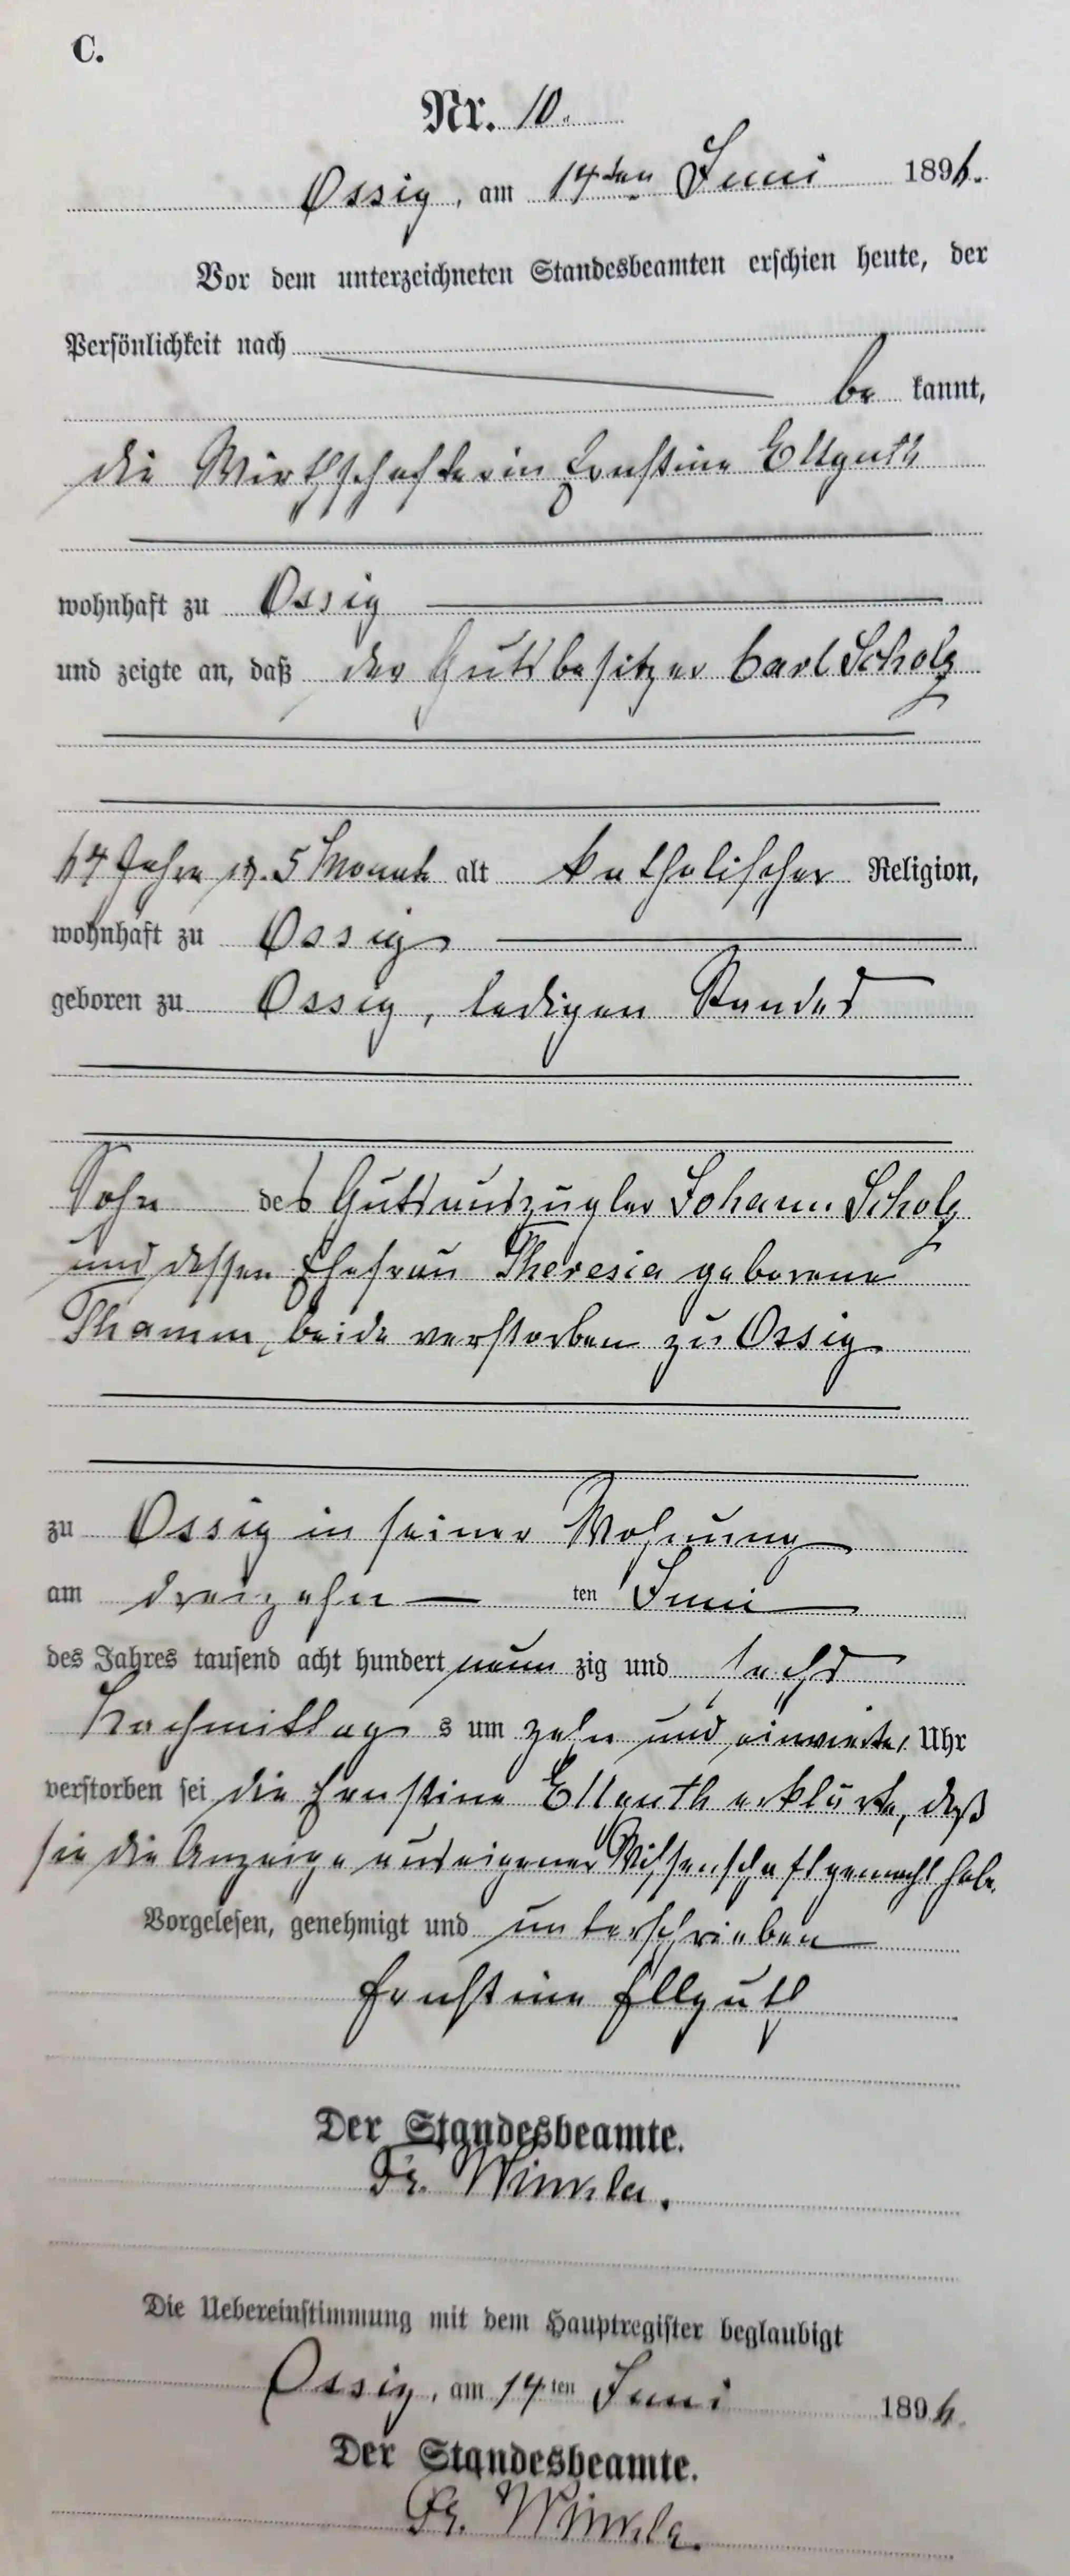 C.
Nr. 10.
Ossig, am 14ten Juni 1896.
Vor dem unterzeichneten Standesbeamten erschien heute, der
Persönlichkeit nach
be kannt,
die Wirthschafterin Ernstine Ellguth
wohnhaft zu Ossig
und zeigte an, daß der Gutsbesitzer Carl Scholz
64 Jahre u. 5 Monate alt katholischer Religion,
wohnhaft zu Ossig
geboren zu Ossig, ledigen Standes
Sohn des Gutsauszügler Johann Scholz
und dessen Ehefrau Theresia geborene
Thamm, beide verstorben zu Ossig
zu Ossig in seiner Wohnung
am dreizehn ten Juni
des Jahres tausend acht hundert neun zig und sechs
Nachmittag s um zehn und einviertel Uhr
verstorben sei die Ernstine Ellguth erklärte, daß
sie die Anzeige aus eigener Wissenschaft gemacht habe.
Vorgelesen, genehmigt und unterschrieben
Ernstine Ellguth
Der Standesbeamte.
Fr. Winkler.
Die Uebereinstimmung mit dem Hauptregister beglaubigt
Ossig, am 14ten Juni 1896.
Der Standesbeamte.
Fr. Winkler.